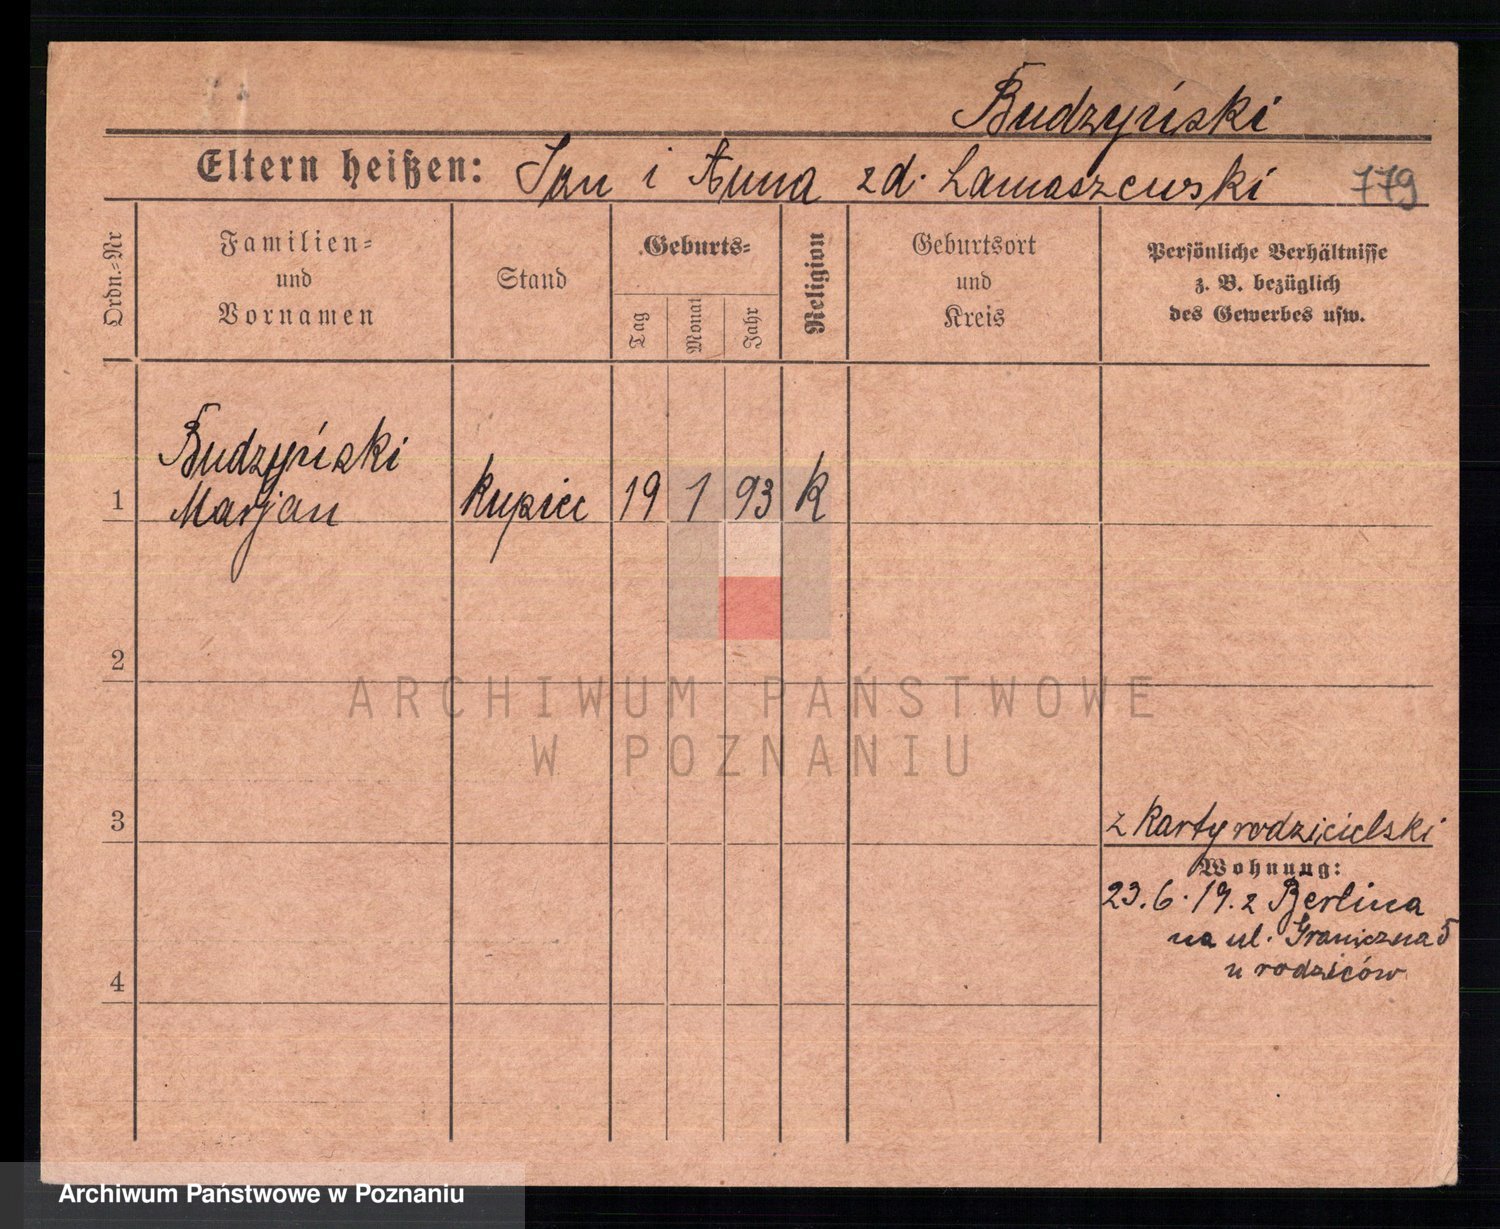 Budzyński
Eltern heißen: Jan i Anna zd. Lamaszewski 779
Ordn.-Nr
Familien-
und
Vornamen
Stand
Geburts-
Tag
Monat
Jahr
Religion
Geburtsort
und
Kreis
Persönliche Verhältnisse
z. B. bezüglich
des Gewerbes usw.
Budzyński
1 Marjan kupiec 19 1 93 k
2
ARCHIWUM PAŃSTWOWE
W POZNANIU
3
z karty rodzicielski
Wohnung:
23.6.19. z Berlina
na ul. Graniczna 5
u rodziców
4
Archiwum Państwowe w Poznaniu